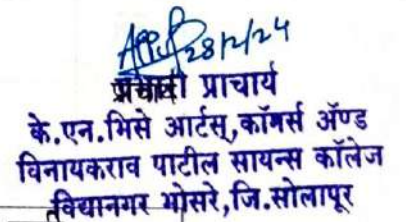 28/2/24
प्रभारी प्राचार्य
के.एन.भिसे आर्टस्,कॉमर्स ॲण्ड
विनायकराव पाटील सायन्स कॉलेज
विद्यानगर भोसरे,जि.सोलापूर